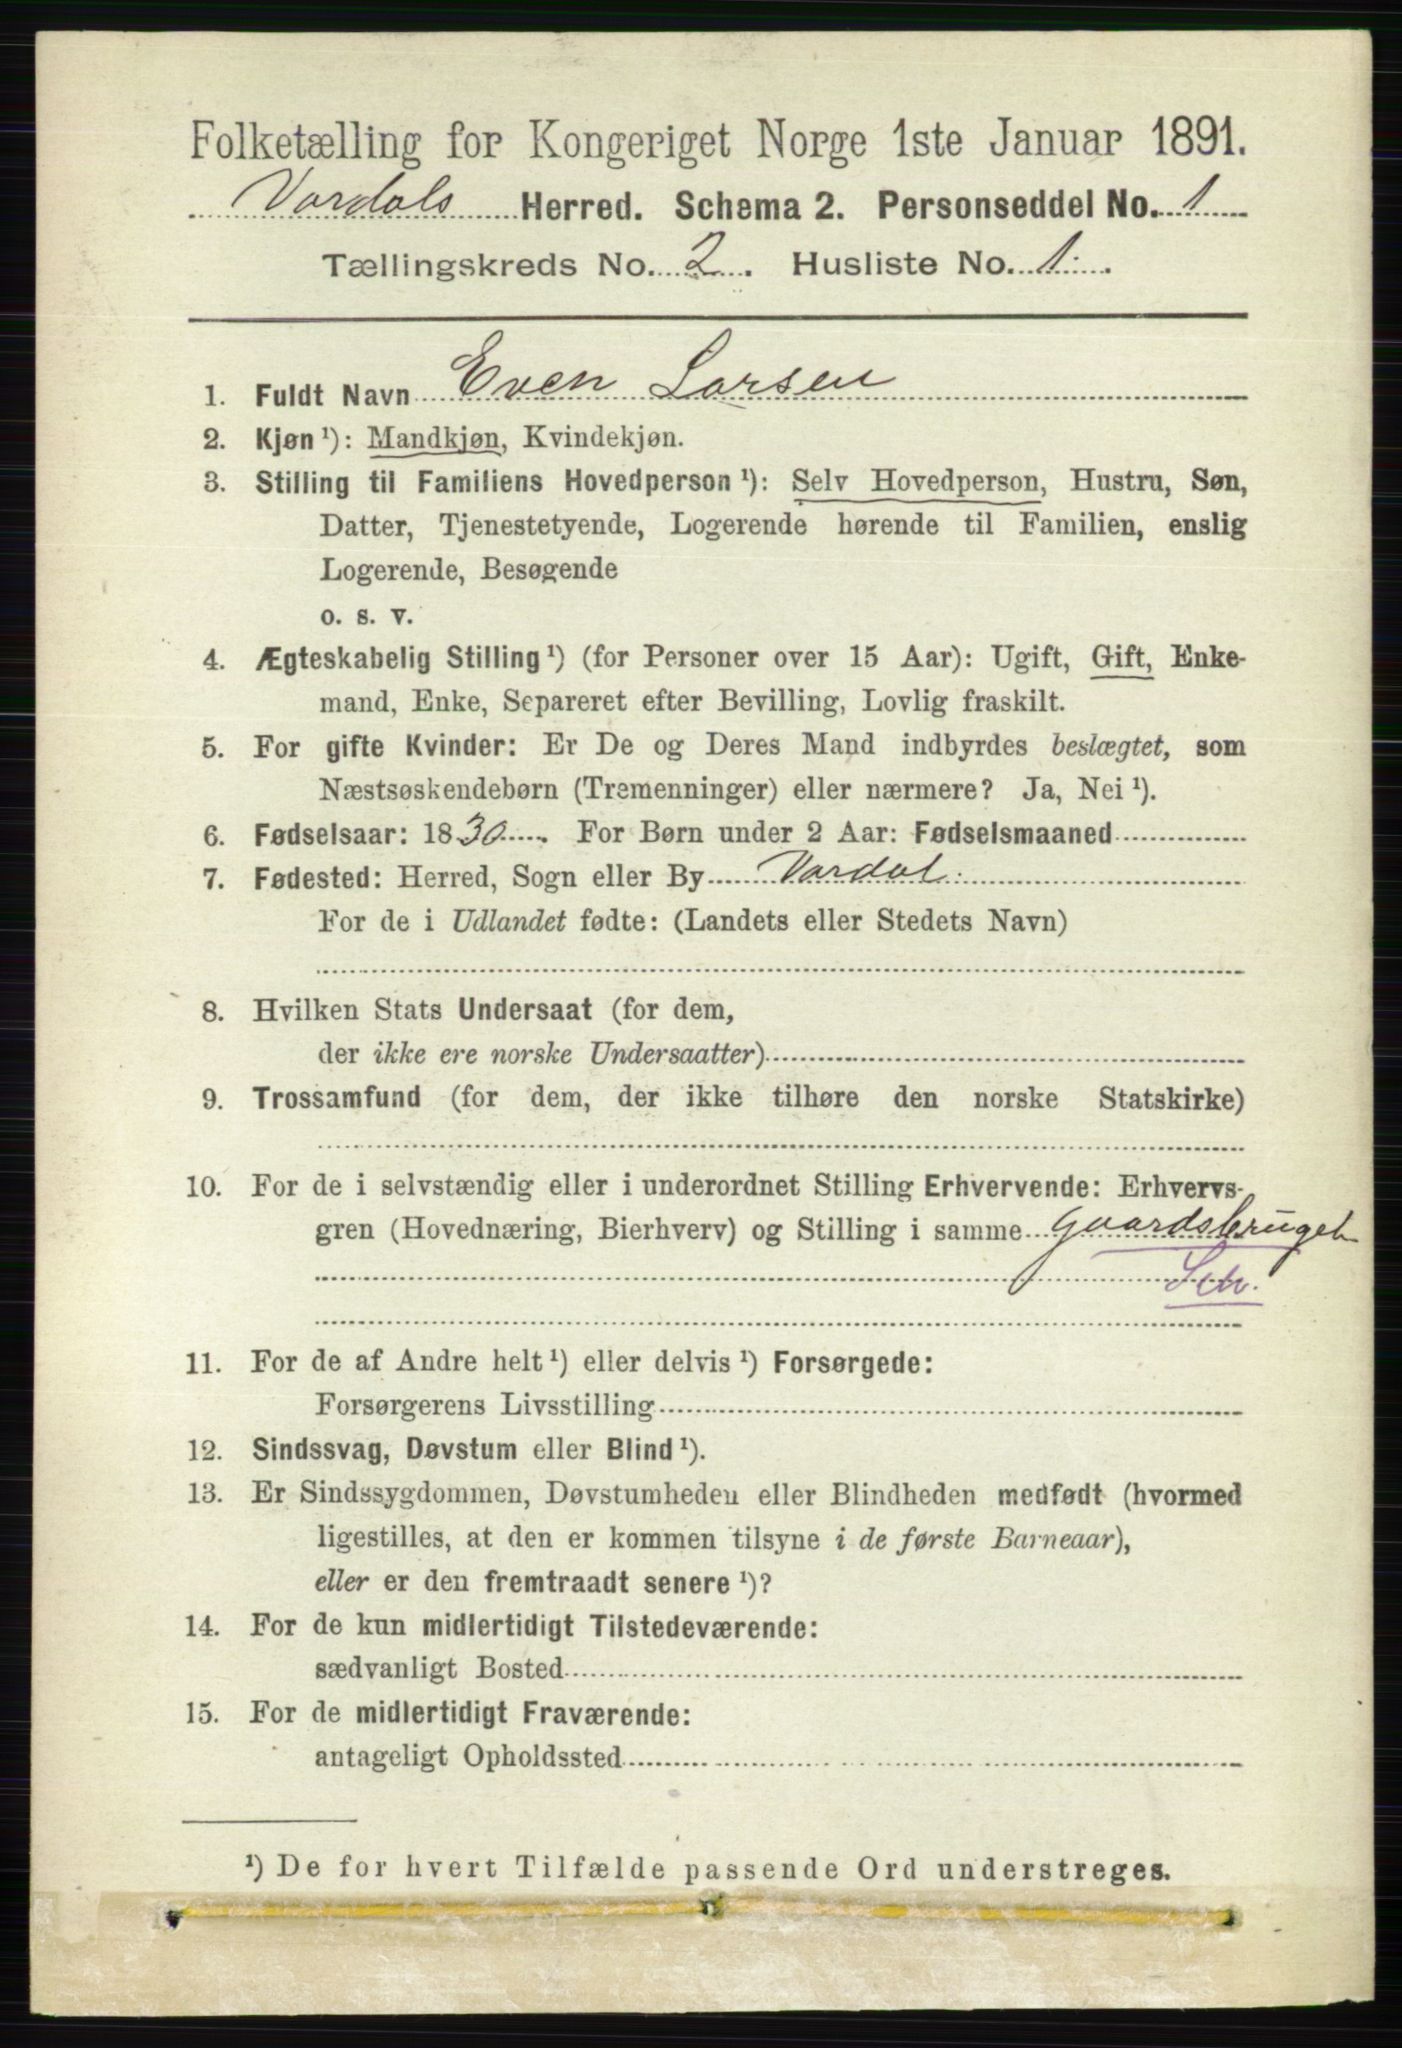 Folketælling for Kongeriget Norge 1ste Januar 1891.
Vardals Herred. Schema 2. Personseddel No. 1
Tællingskreds No. 2. Husliste No. 1.
1. Fuldt Navn Even Larsen
2. Kjøn ¹): Mandkjøn, Kvindekjøn.
3. Stilling til Familiens Hovedperson ¹): Selv Hovedperson, Hustru, Søn,
Datter, Tjenestetyende, Logerende hørende til Familien, enslig
Logerende, Besøgende
o. s. v.
4. Ægteskabelig Stilling ¹) (for Personer over 15 Aar): Ugift, Gift, Enke-
mand, Enke, Separeret efter Bevilling, Lovlig fraskilt.
5. For gifte Kvinder: Er De og Deres Mand indbyrdes beslægtet, som
Næstsøskendebørn (Tremenninger) eller nærmere? Ja, Nei ¹).
6. Fødselsaar: 1830. For Børn under 2 Aar: Fødselsmaaned
7. Fødested: Herred, Sogn eller By Vardal.
For de i Udlandet fødte: (Landets eller Stedets Navn)
8. Hvilken Stats Undersaat (for dem,
der ikke ere norske Undersaatter)
9. Trossamfund (for dem, der ikke tilhøre den norske Statskirke)
10. For de i selvstændig eller i underordnet Stilling Erhvervende: Erhvervs-
gren (Hovednæring, Bierhverv) og Stilling i samme Gaardsbruget
11. For de af Andre helt ¹) eller delvis ¹) Forsørgede:
Forsørgerens Livsstilling
12. Sindssvag, Døvstum eller Blind ¹).
13. Er Sindssygdommen, Døvstumheden eller Blindheden medfødt (hvormed
ligestilles, at den er kommen tilsyne i de første Barneaar),
eller er den fremtraadt senere ¹)?
14. For de kun midlertidigt Tilstedeværende:
sædvanligt Bosted
15. For de midlertidigt Fraværende:
antageligt Opholdssted
¹) De for hvert Tilfælde passende Ord understreges.